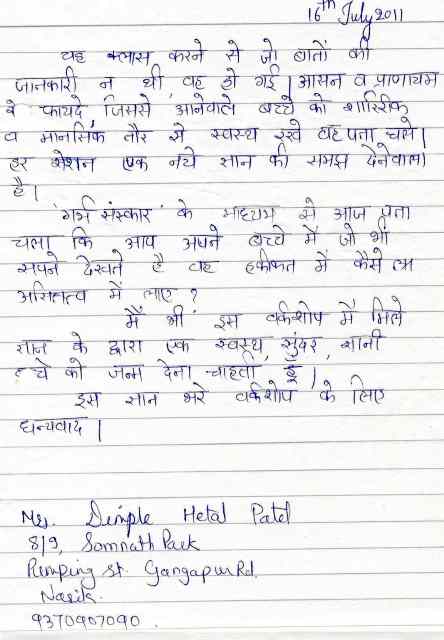 16th July 2011
यह क्लास करने से जो बातों की
जानकारी न थी, वह हो गई। आसन व प्राणायम
के फायदे, जिससे आनेवाले बच्चे को शारिरीक
व मानसिक तौर से स्वस्थ रखे वह पता चले।
हर सेशन एक नये ज्ञान की समझ देनेवाला
है।
'गर्भ संस्कार' के माध्यम से आज पता
चला कि आप अपने बच्चे में जो भी
सपने देखते है वह हकीकत में कैसे
अस्तित्व में लाए?
मैं भी इस वर्कशोप में मिले
ज्ञान के द्वारा एक स्वस्थ, सुंदर, ज्ञानी
बच्चे को जन्म देना चाहती हूँ।
इस ज्ञान भरे वर्कशोप के लिए
धन्यवाद।
Mrs. Dimple Hetal Patel
8/9, Somnath Park
Pumping st. Gangapur Rd.
Nasik.
9370907090.